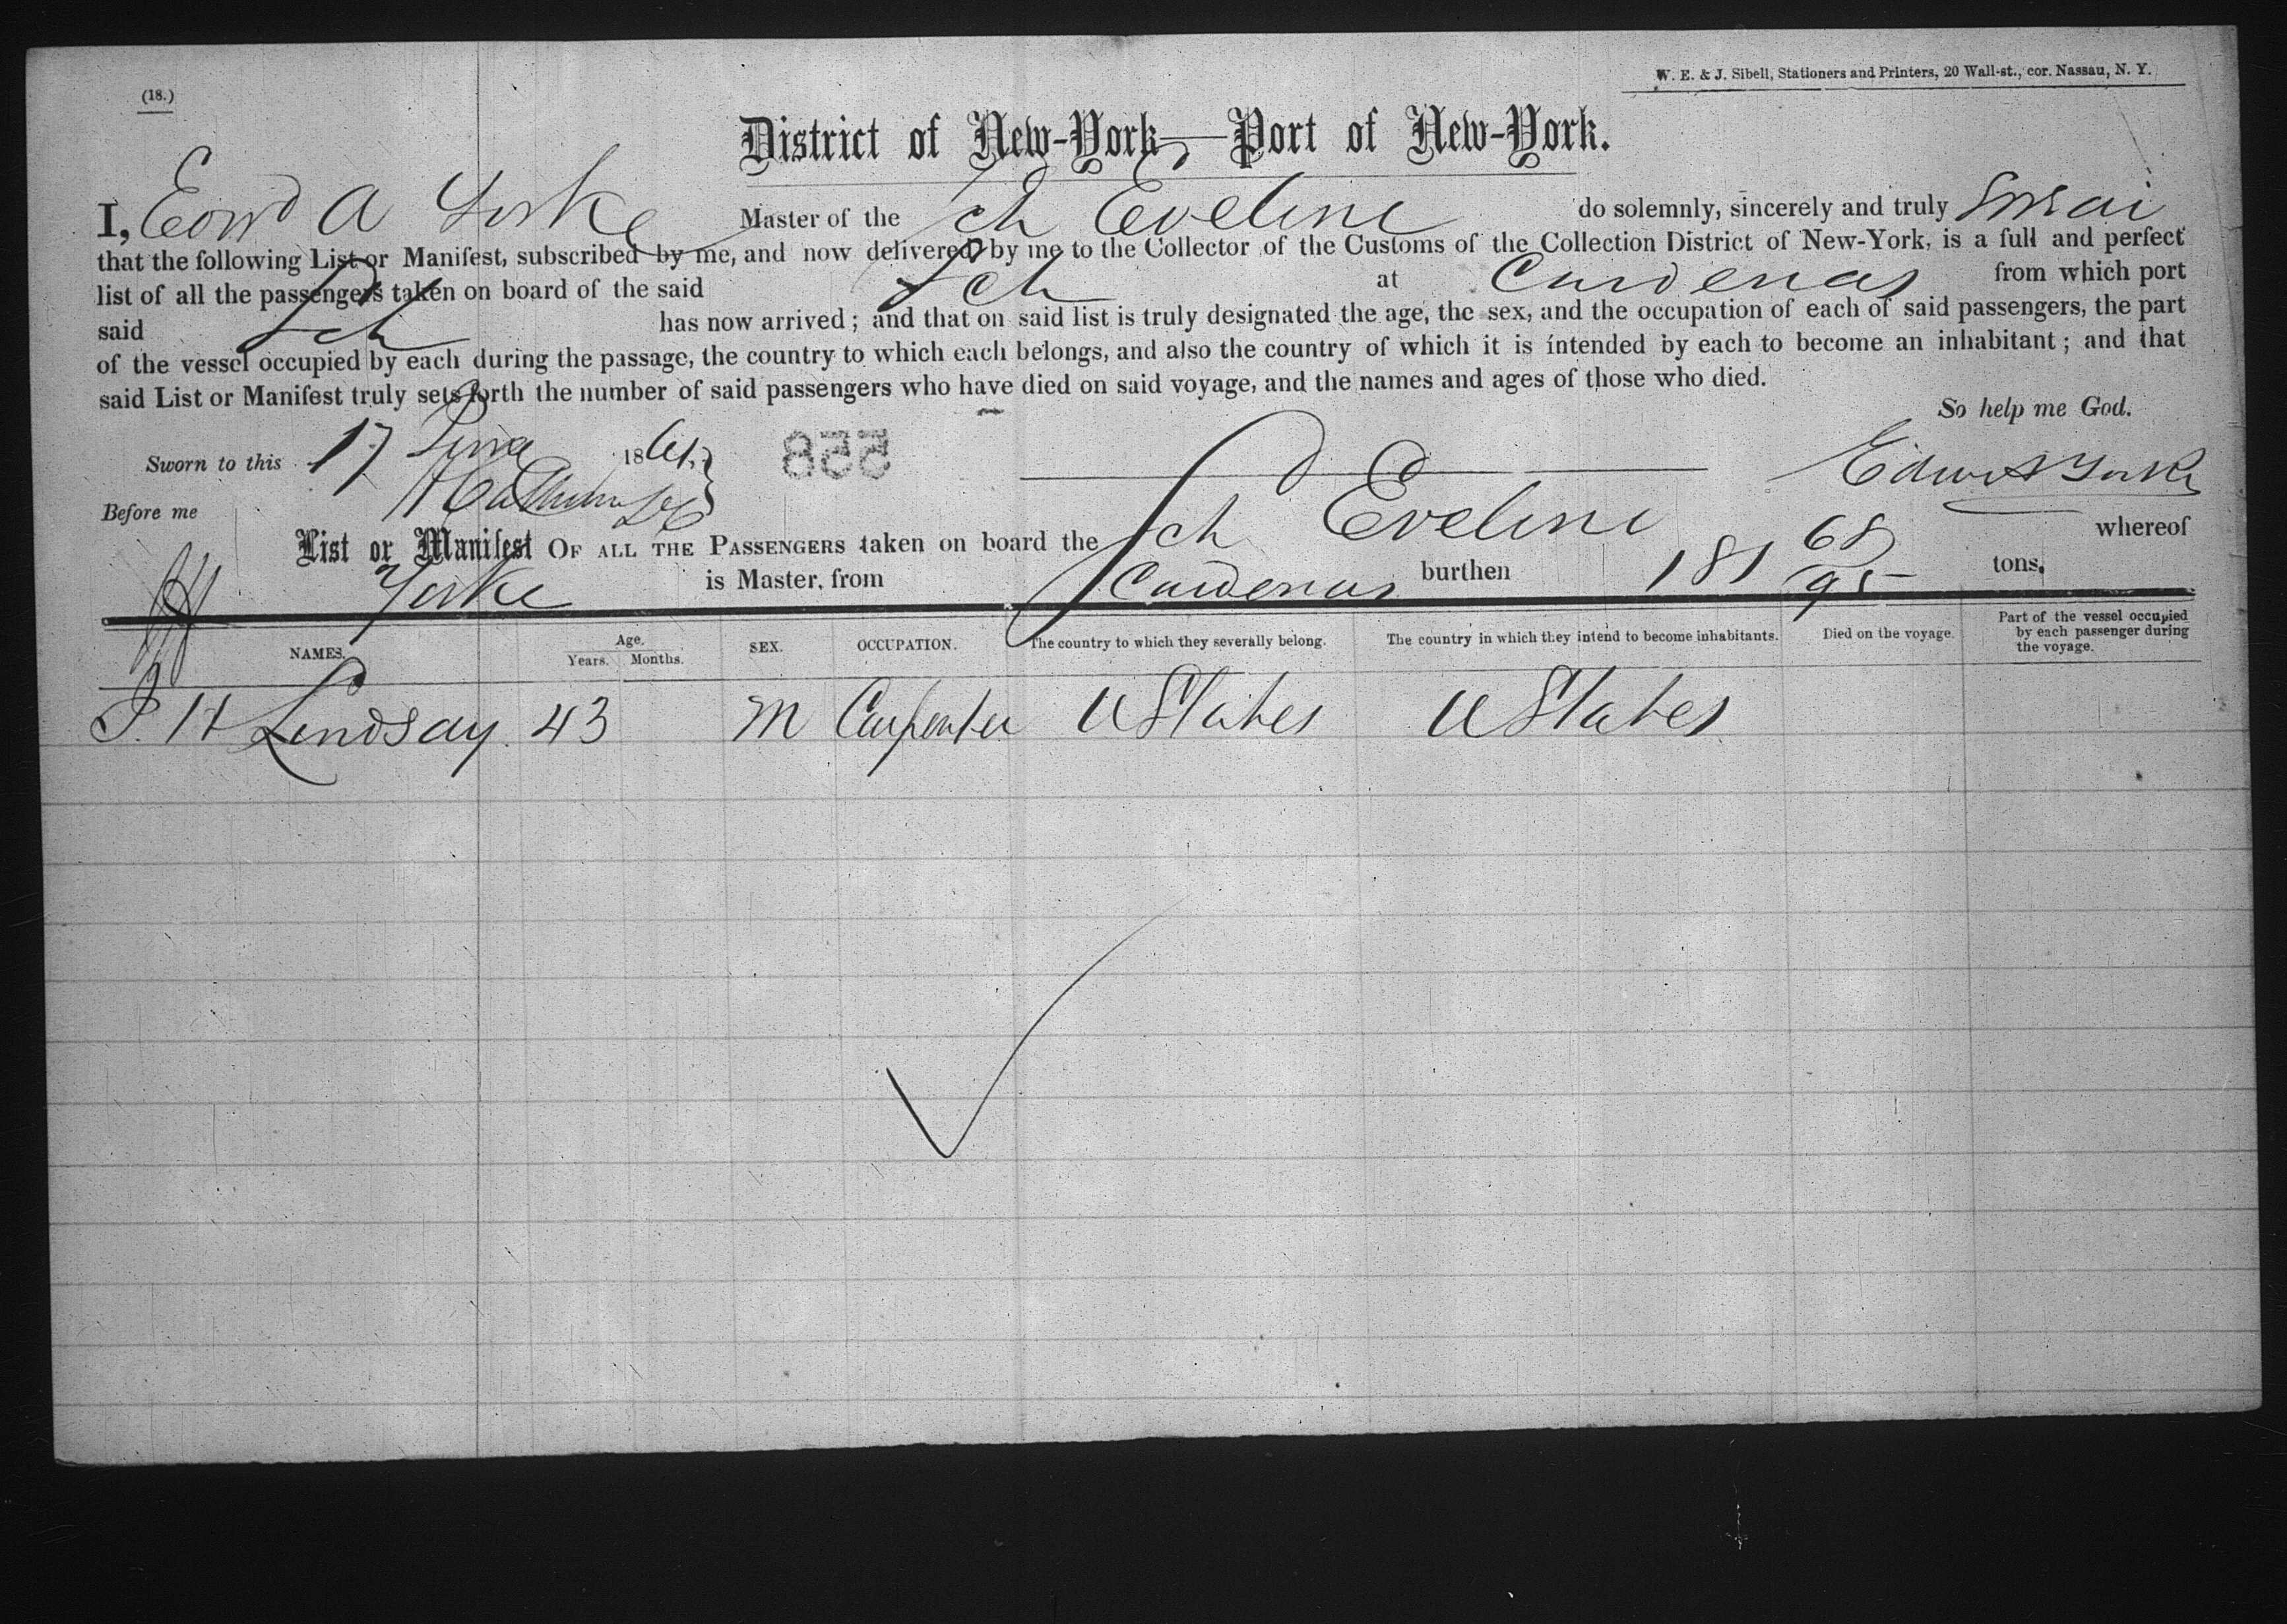 (18.)
W. E. & J. Sibell, Stationers and Printers, 20 Wall-st., cor. Nassau, N. Y.
District of New-York—Port of New-York.
I, Edwd A Yorke Master of the Sch Eveline do solemnly, sincerely and truly swear
that the following List or Manifest, subscribed by me, and now delivered by me to the Collector of the Customs of the Collection District of New-York, is a full and perfect
list of all the passengers taken on board of the said Sch at Cardenas from which port
said Sch has now arrived; and that on said list is truly designated the age, the sex, and the occupation of each of said passengers, the part
of the vessel occupied by each during the passage, the country to which each belongs, and also the country of which it is intended by each to become an inhabitant; and that
said List or Manifest truly sets forth the number of said passengers who have died on said voyage, and the names and ages of those who died.
So help me God.
Sworn to this 17 June 1861 558 Edwd A Yorke
Before me
List or Manifest OF ALL THE PASSENGERS taken on board the Sch Eveline whereof
Yorke is Master, from Cardenas burthen 181 68/95 tons.
NAMES. Age. Years. Months. SEX. OCCUPATION. The country to which they severally belong. The country in which they intend to become inhabitants. Died on the voyage. Part of the vessel occupied by each passenger during the voyage.
J. H Lindsay 43 M Carpenter U States U States